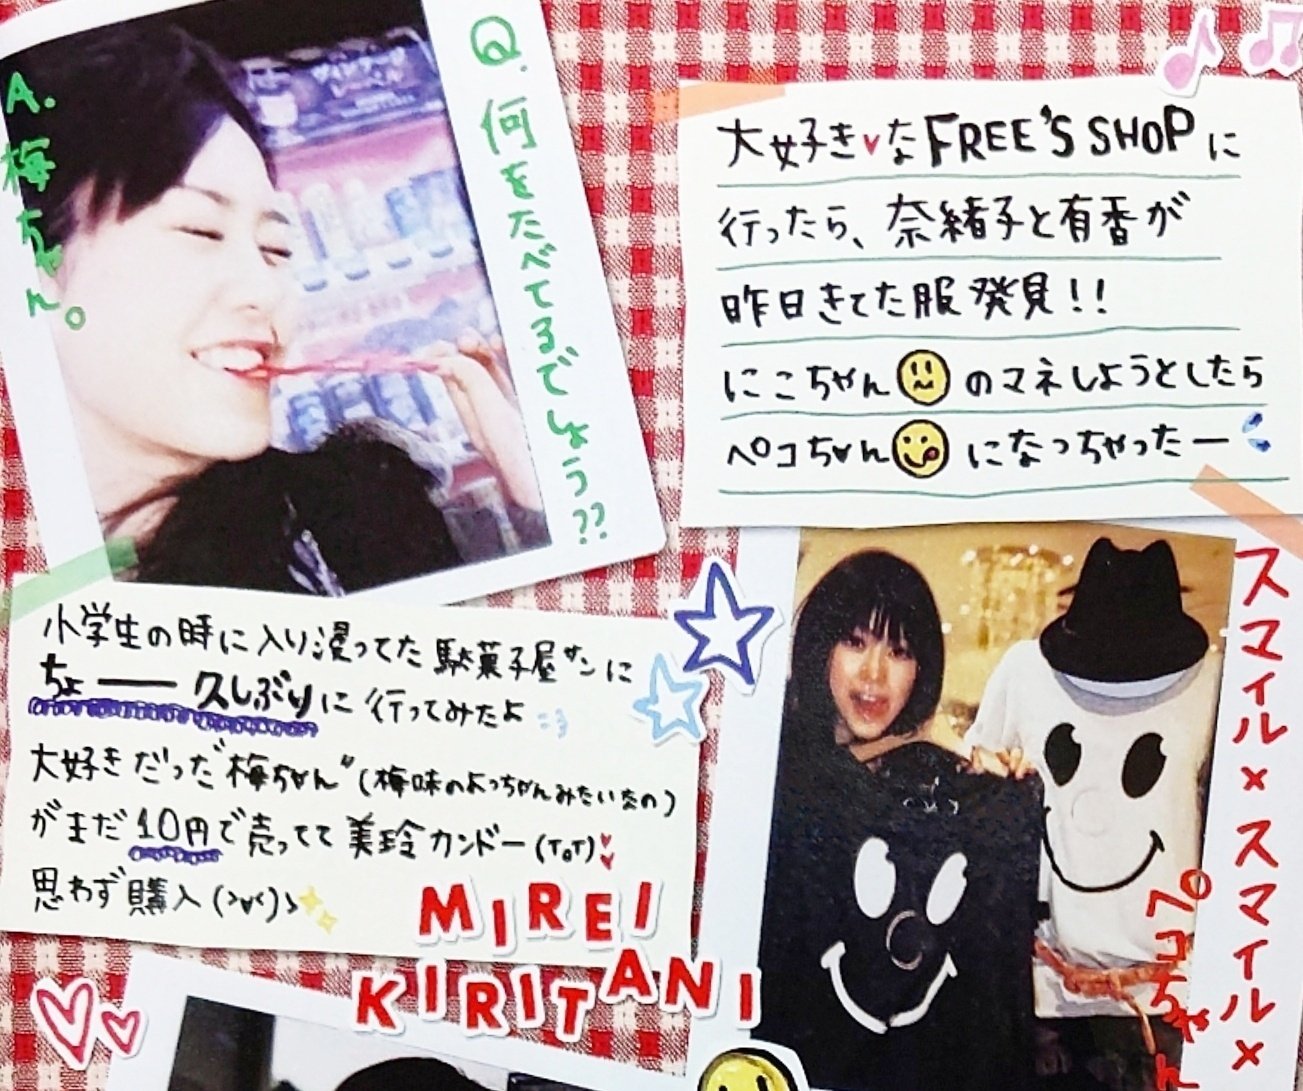 Q. 何をたべてるでしょう??
A. 梅ちゃん。
大好き♥なFREE'S SHOPに
行ったら、奈緒子と有香が
昨日きてた服発見!!
にこちゃんのマネしようとしたら
ペコちゃんになっちゃったー
小学生の時に入り浸ってた駄菓子屋サンに
ちょー久しぶりに行ってみたよ
大好きだった"梅ちゃん"(梅味のよっちゃんみたいなの)
がまだ10円で売ってて美玲カンドー(ToT)
思わず購入(>∀<)
スマイル×スマイル×
ペコちゃん
MIREI
KIRITANI